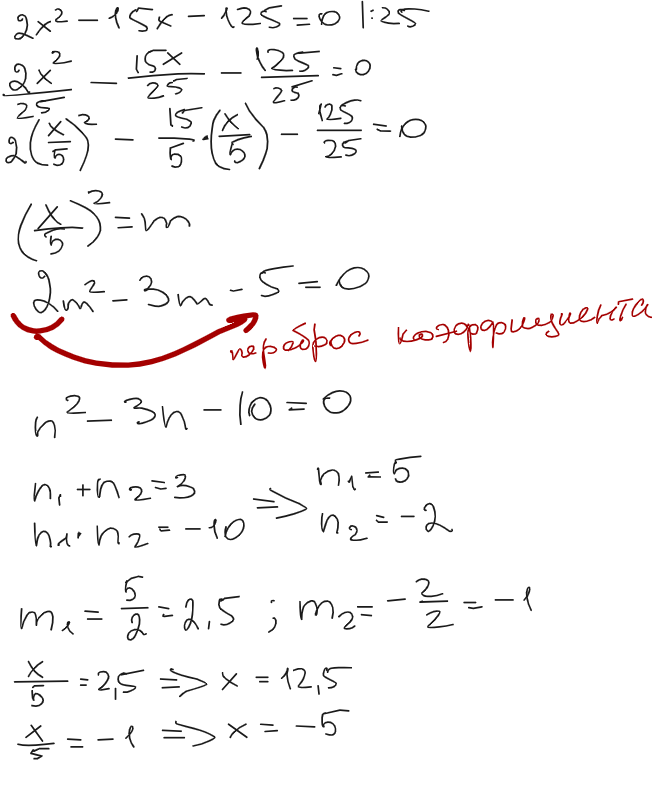 2x² − 15x − 125 = 0 |:25
2x²/25 − 15x/25 − 125/25 = 0
2(x/5)² − 15/5 · (x/5) − 125/25 = 0
(x/5)² = m
2m² − 3m − 5 = 0
переброс коэффициента
n² − 3n − 10 = 0
n₁ + n₂ = 3 ⇒ n₁ = 5
n₁ · n₂ = −10 n₂ = −2
m₁ = 5/2 = 2,5 ; m₂ = −2/2 = −1
x/5 = 2,5 ⇒ x = 12,5
x/5 = −1 ⇒ x = −5